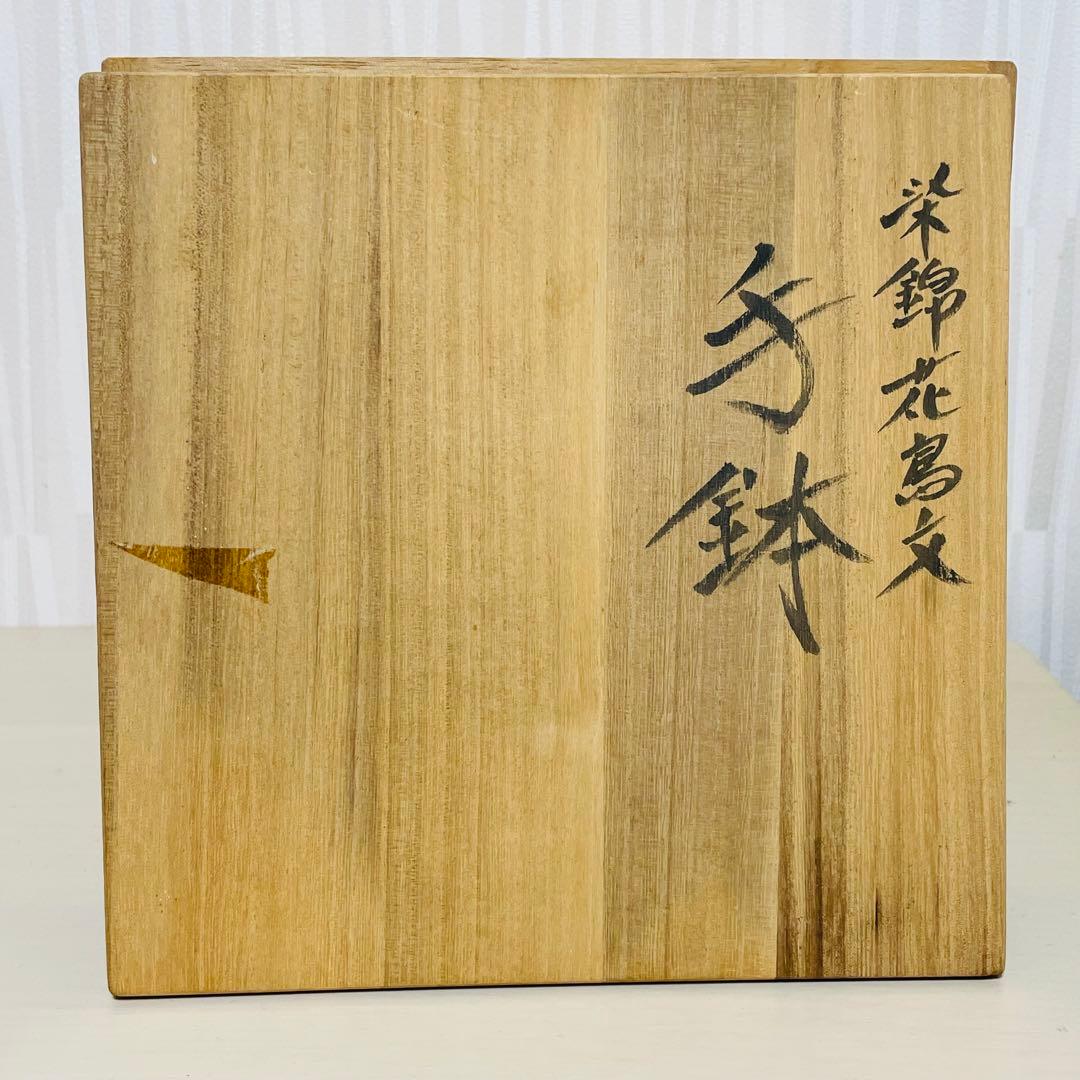 染錦花鳥文
手鉢